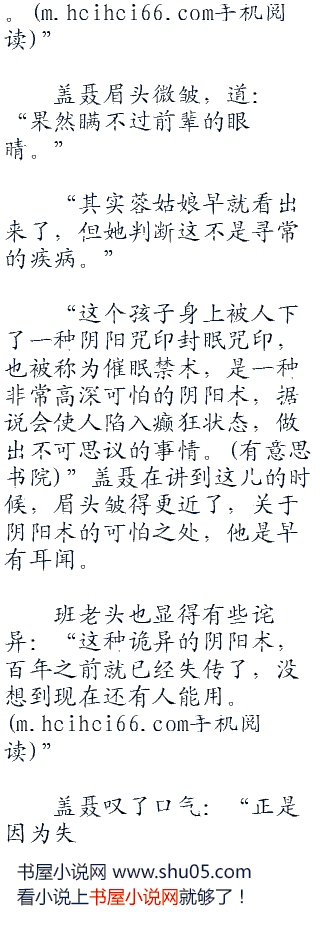 。(m.hcihci66.com手机阅
读)”
盖聂眉头微皱，道：
“果然瞒不过前辈的眼
睛。”
“其实蓉姑娘早就看出
来了，但她判断这不是寻常
的疾病。”
“这个孩子身上被人下
了一种阴阳咒印封眠咒印，
也被称为催眠禁术，是一种
非常高深可怕的阴阳术，据
说会使人陷入癫狂状态，做
出不可思议的事情。(有意思
书院)”盖聂在讲到这儿的时
候，眉头皱得更近了，关于
阴阳术的可怕之处，他是早
有耳闻。
班老头也显得有些诧
异：“这种诡异的阴阳术，
百年之前就已经失传了，没
想到现在还有人能用。
(m.hcihci66.com手机阅
读)”
盖聂叹了口气：“正是
因为失
书屋小说网 www.shu05.com
看小说上书屋小说网就够了！